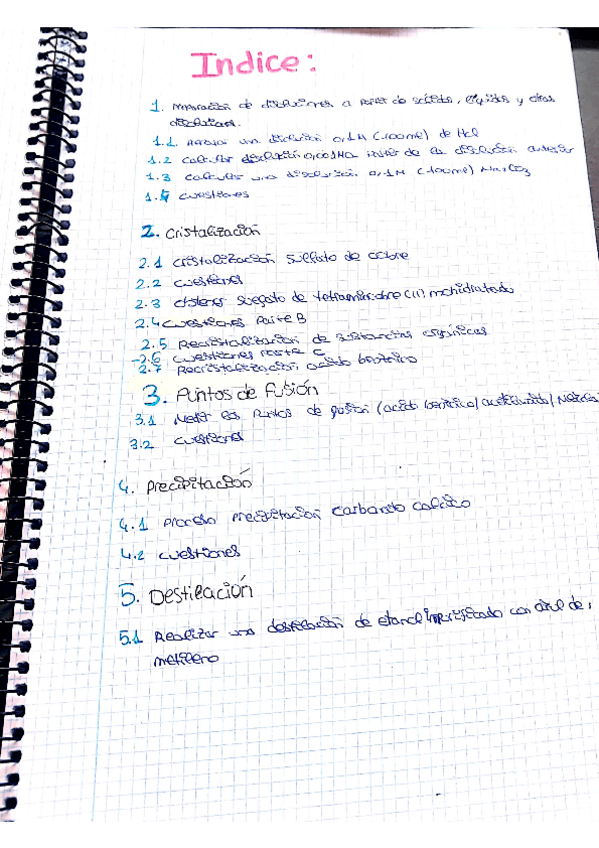 Indice:
1. Preparación de disoluciones a partir de sólidos, líquidos y otras
disoluciones.
1.1 una disolución 0,1M (100ml) de HCl
1.2 calcular disolución 0,001M a de la disolución anterior
1.3 calcular una disolución 0,1M (100ml)
1.4 cuestiones
2. Cristalización
2.1 cristalización sulfato de cobre
2.2 cuestiones
2.3 obtener sulfato de (II) mohidratado
2.4 cuestiones Parte B
2.5 Recristalización de sustancias orgánicas
2.6 cuestiones parte C
2.7 Recristalización acido benzoico
3. Puntos de Fusión
3.1 Medir los Puntos de fusión (acido benzoico/acetanilida/Mezcla
3.2 cuestiones
4. Precipitación
4.1 Proceso precipitación carbonato calcico
4.2 cuestiones
5. Destilación
5.1 Realizar una destilación de etanol con azul de
metileno